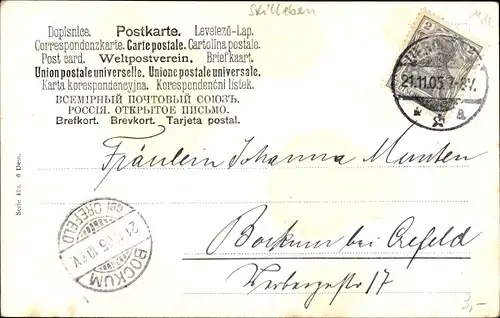 Stilleben
Dopisnice. Postkarte. Levelező-Lap.
Correspondenzkarte. Carte postale. Cartolina postale.
Post card. Weltpostverein. Briefkaart.
Union postale universelle. Unione postale universale.
Karta korespondencyjna. Korespondenční lístek.
ВСЕМІРНЫЙ ПОЧТОВЫЙ СОЮЗЪ.
РОССІЯ. ОТКРЫТОЕ ПИСЬМО.
Brefkort. Brevkort. Tarjeta postal.
2
21.11.05. 7-8V.
A
Fräulein Johanna Munten
Bockum bei Crefeld
17
Serie 410. 6 Dess.
(bei CREFELD)
21.11.05.
BOCKUM
3,-